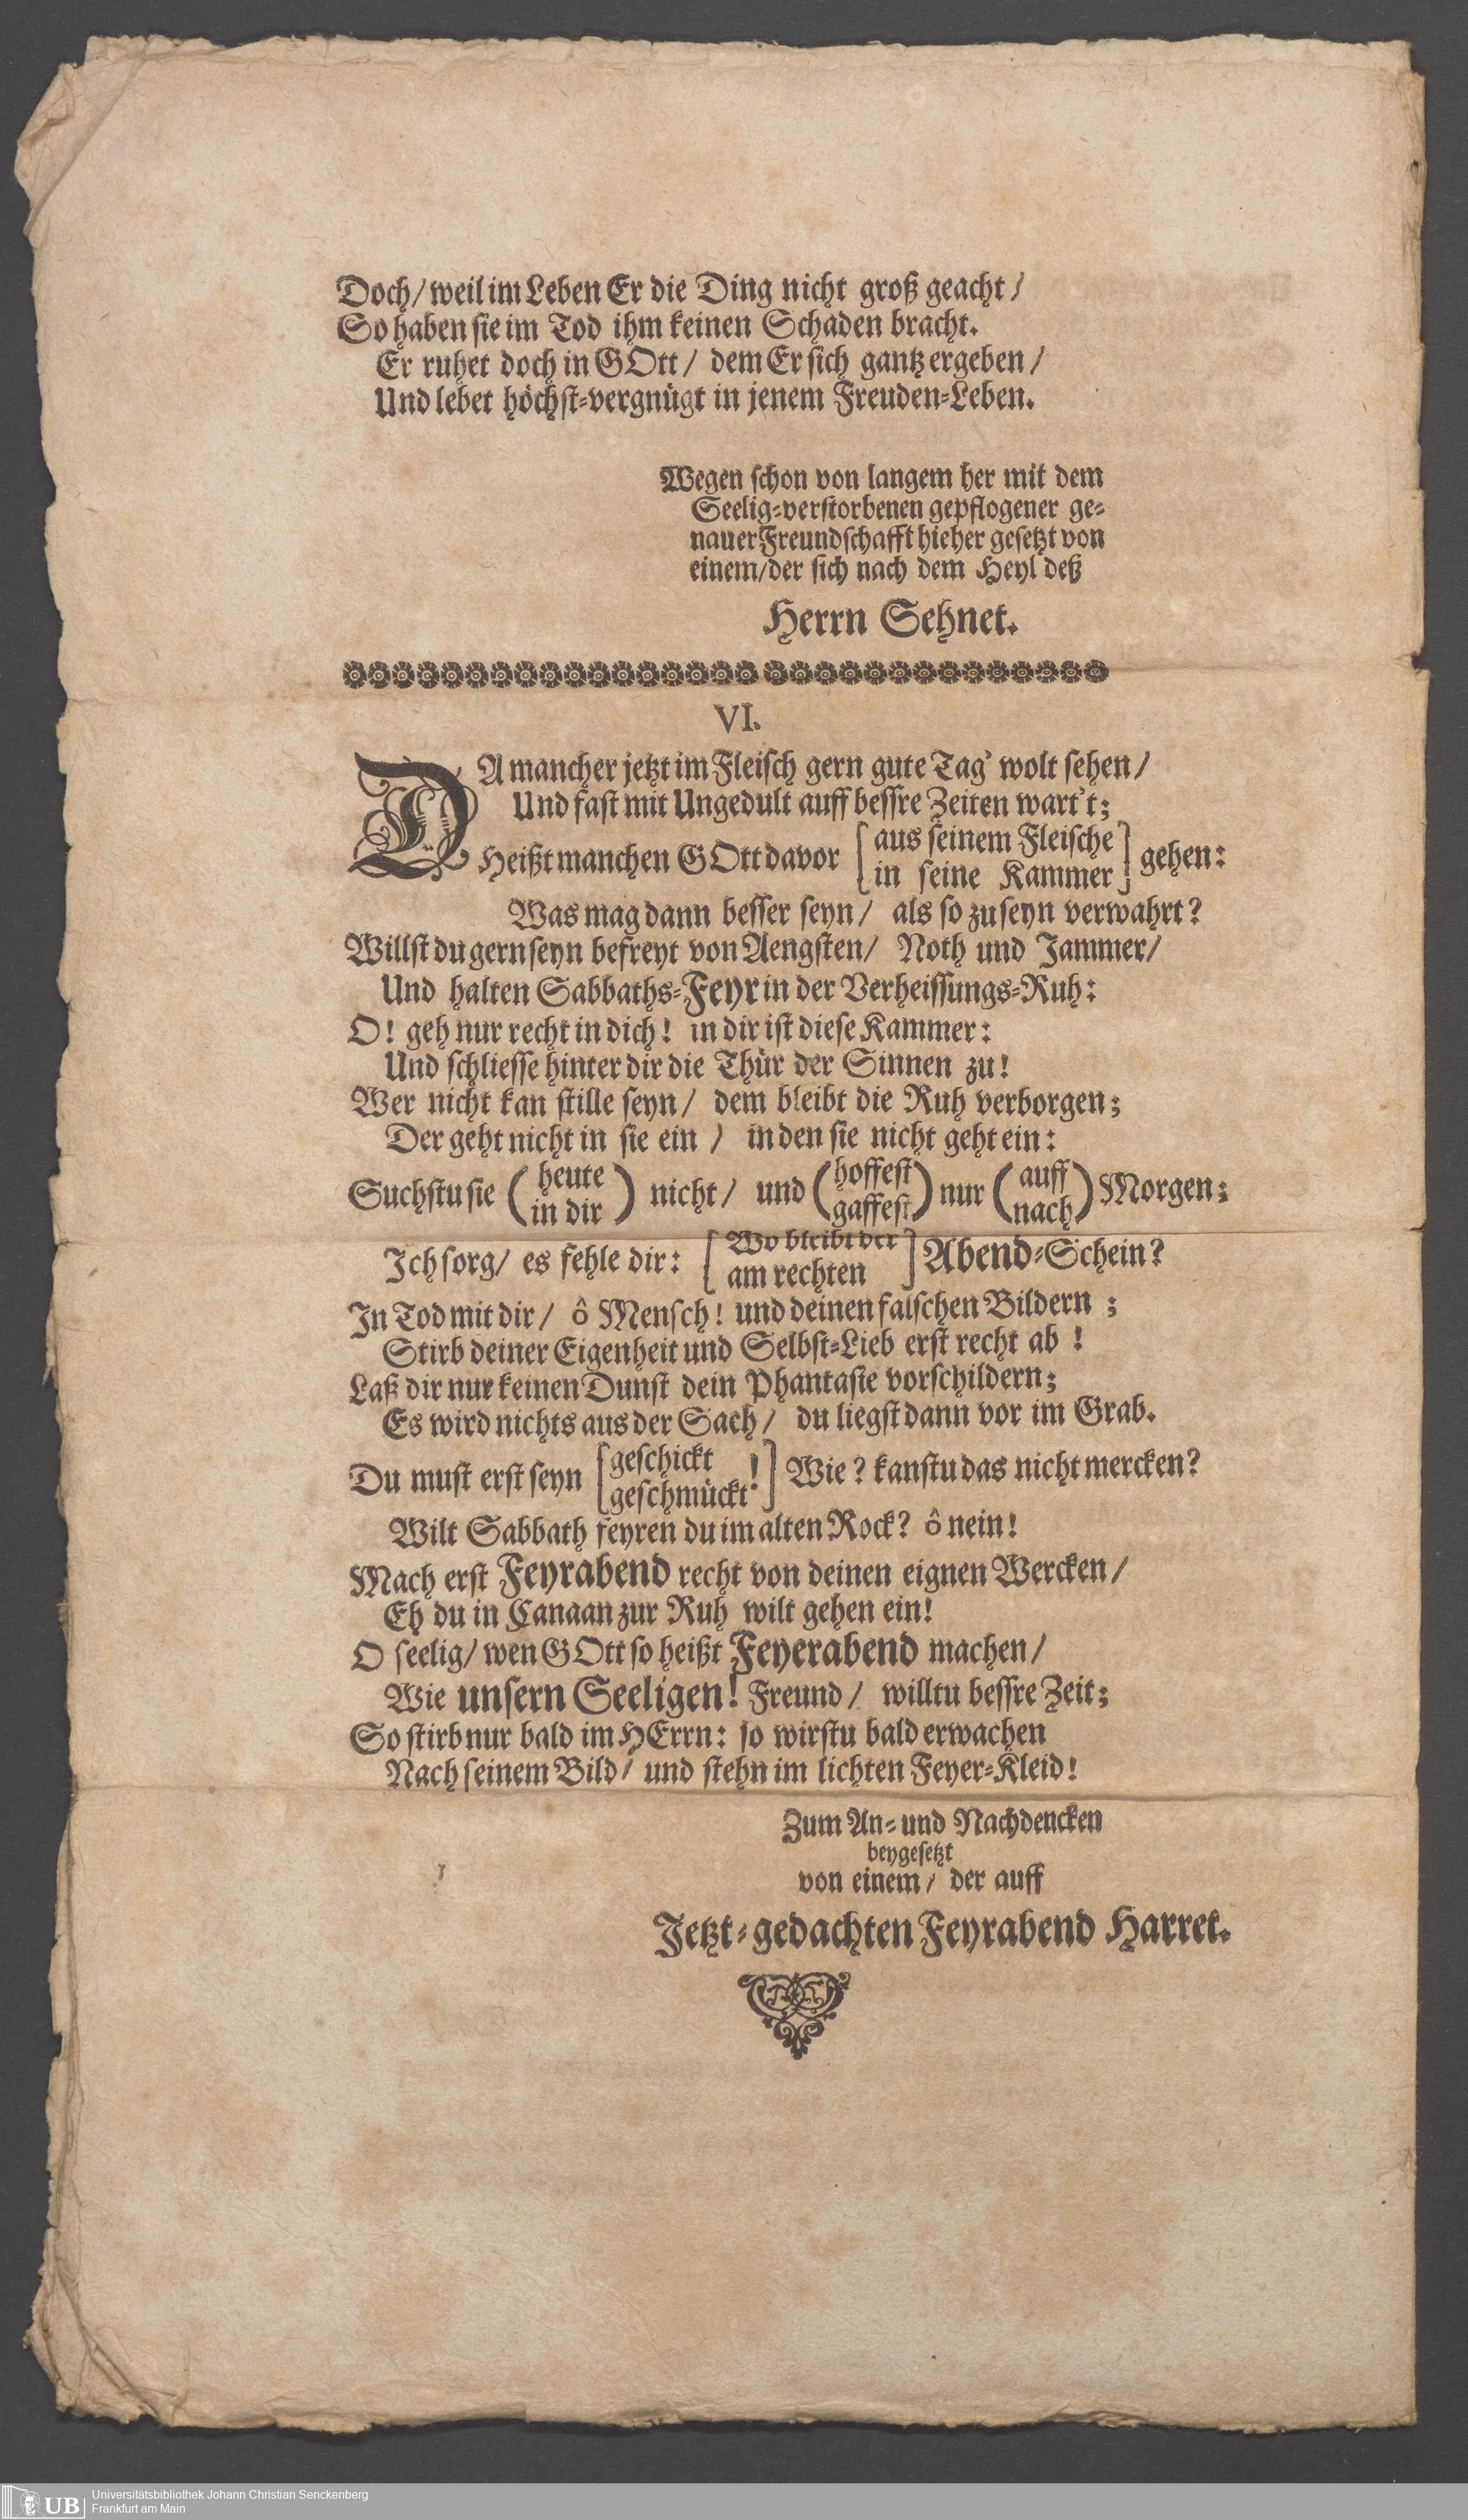 Doch/ weil im Leben Er die Ding nicht groß geacht/
So haben sie im Tod ihm keinen Schaden bracht.
Er ruhet doch in GOtt/ dem Er sich gantz ergeben/
Und lebet höchst-vergnügt in jenem Freuden-Leben.
Wegen schon von langem her mit dem
Seelig-verstorbenen gepflogener ge-
nauer Freundschafft hieher gesetzt von
einem/ der sich nach dem Heyl deß
Herrn Sehnet.
VI.
DA mancher jetzt im Fleisch gern gute Tag' wolt sehen/
Und fast mit Ungedult auff bessre Zeiten wart't;
Heißt manchen GOtt davor [aus seinem Fleische
in seine Kammer] gehen:
Was mag dann besser seyn/ als so zu seyn verwahrt?
Willst du gern seyn befreyt von Aengsten/ Noth und Jammer/
Und halten Sabbaths-Feyr in der Verheissungs-Ruh:
O! geh nur recht in dich! in dir ist diese Kammer:
Und schliesse hinter dir die Thür der Sinnen zu!
Wer nicht kan stille seyn/ dem bleibt die Ruh verborgen;
Der geht nicht in sie ein/ in den sie nicht geht ein:
Suchstu sie (heute
in dir) nicht/ und (hoffest
gaffest) nur (auff
nach) Morgen;
Ich sorg/ es fehle dir: [Wo bleibt der
am rechten] Abend-Schein?
In Tod mit dir/ ô Mensch! und deinen falschen Bildern;
Stirb deiner Eigenheit und Selbst-Lieb erst recht ab!
Laß dir nur keinen Dunst dein Phantasie vorschildern;
Es wird nichts aus der Sach/ du liegst dann vor im Grab.
Du must erst seyn [geschickt
geschmückt!] Wie? kanstu das nicht mercken?
Wilt Sabbath feyren du im alten Rock? ô nein!
Mach erst Feyrabend recht von deinen eignen Wercken/
Eh du in Canaan zur Ruh wilt gehen ein!
O seelig/ wen GOtt so heißt Feyerabend machen/
Wie unsern Seeligen! Freund/ willtu bessre Zeit;
So stirb nur bald im HErrn: so wirstu bald erwachen
Nach seinem Bild/ und stehn im lichten Feyer-Kleid!
Zum An- und Nachdencken
beygesetzt
von einem/ der auff
Jetzt-gedachten Feyrabend Harret.
UB
Universitätsbibliothek Johann Christian Senckenberg
Frankfurt am Main